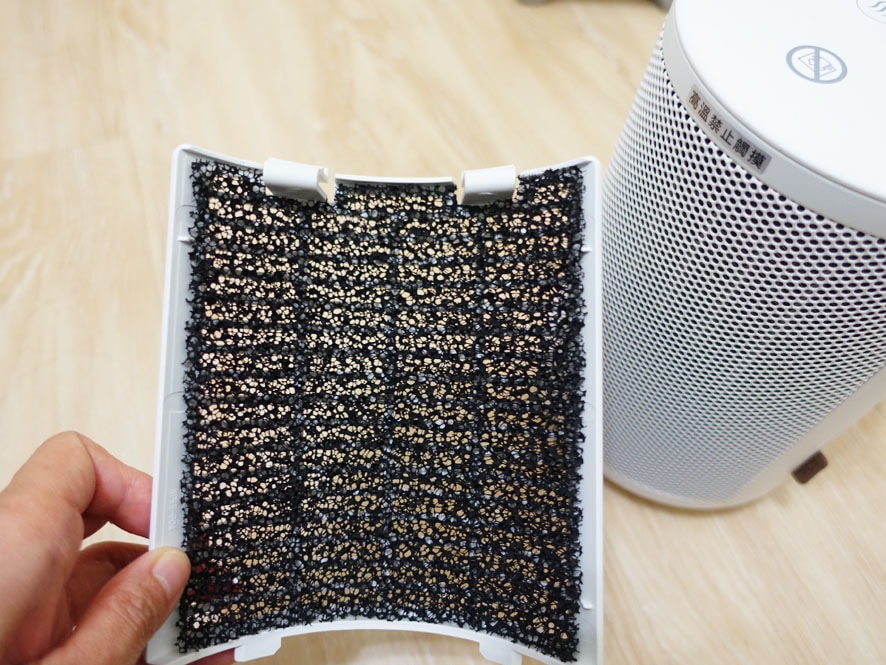 高溫禁止觸摸